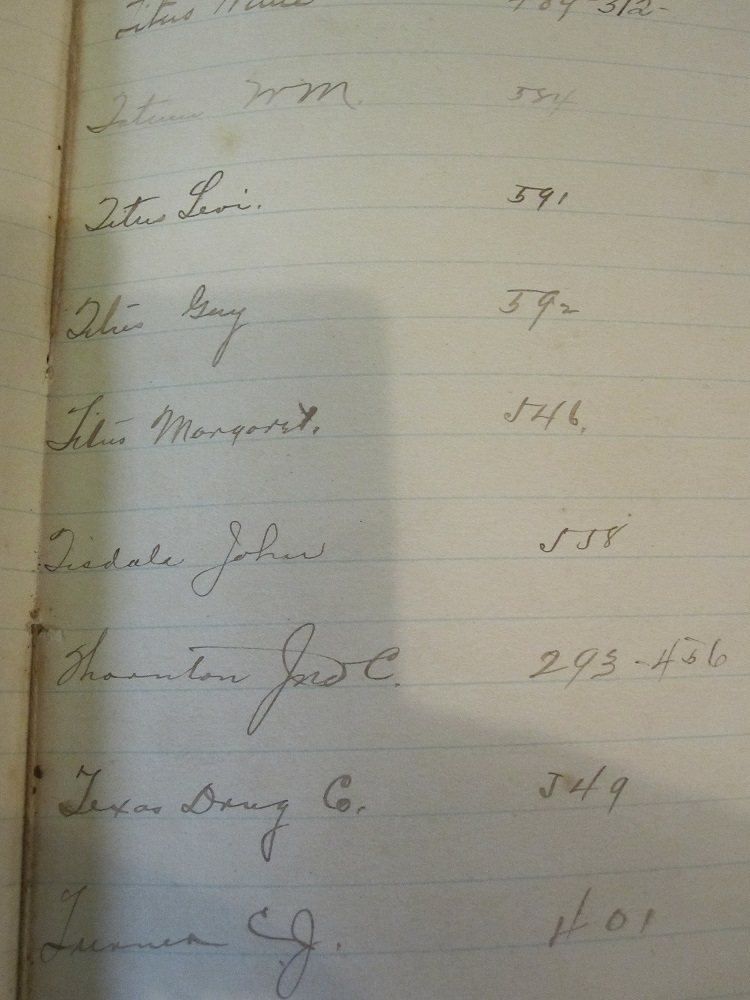 Titus 312-
Tatum WM. 584
Titus Levi. 591
Titus Guy 592
Titus Margaret. 546.
Tisdale John 558
Thornton Jno C. 293-456
Texas Drug Co. 549
Turner C J. 401